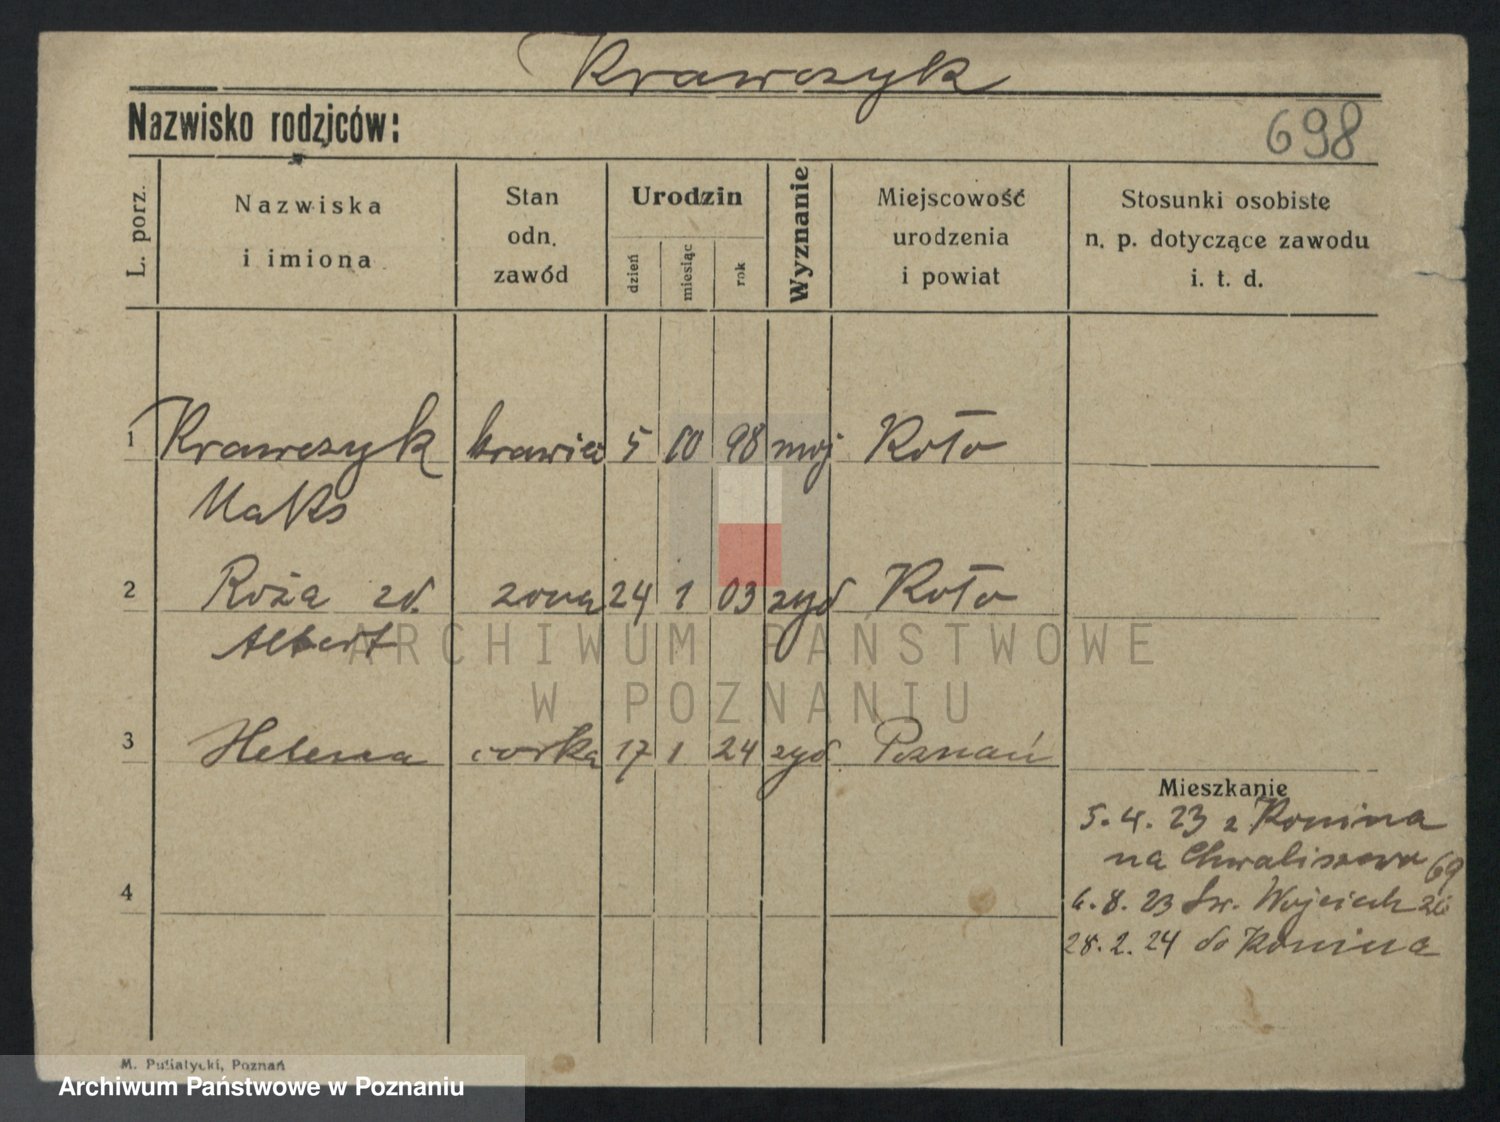 Krawczyk
Nazwisko rodziców:
698
L. porz.
Nazwiska
i imiona
Stan
odn.
zawód
Urodzin
dzień
miesiąc
rok
Wyznanie
Miejscowość
urodzenia
i powiat
Stosunki osobiste
n. p. dotyczące zawodu
i. t. d.
1 Krawczyk krawiec 5 10 98 moj Koło
Maks
2 Roża zd. żona 24 1 03 zyd Koło
Albert
ARCHIWUM PAŃSTWOWE
W POZNANIU
3 Helena corka 17 1 24 zyd Poznań
Mieszkanie
5. 4. 23 z Konina
na Chwaliszewo 69
6. 8. 23 Św. Wojciech 26
4
28. 2. 24 do Konina
M. Putiatycki, Poznań
Archiwum Państwowe w Poznaniu